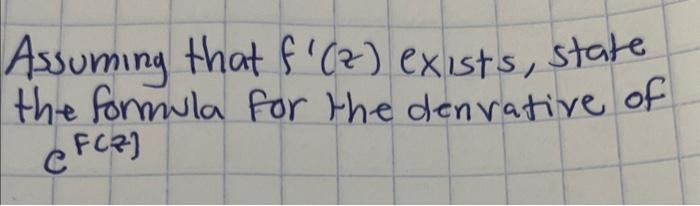 Assuming that f'(z) exists, state
the formula for the denvative of
e^F(z)